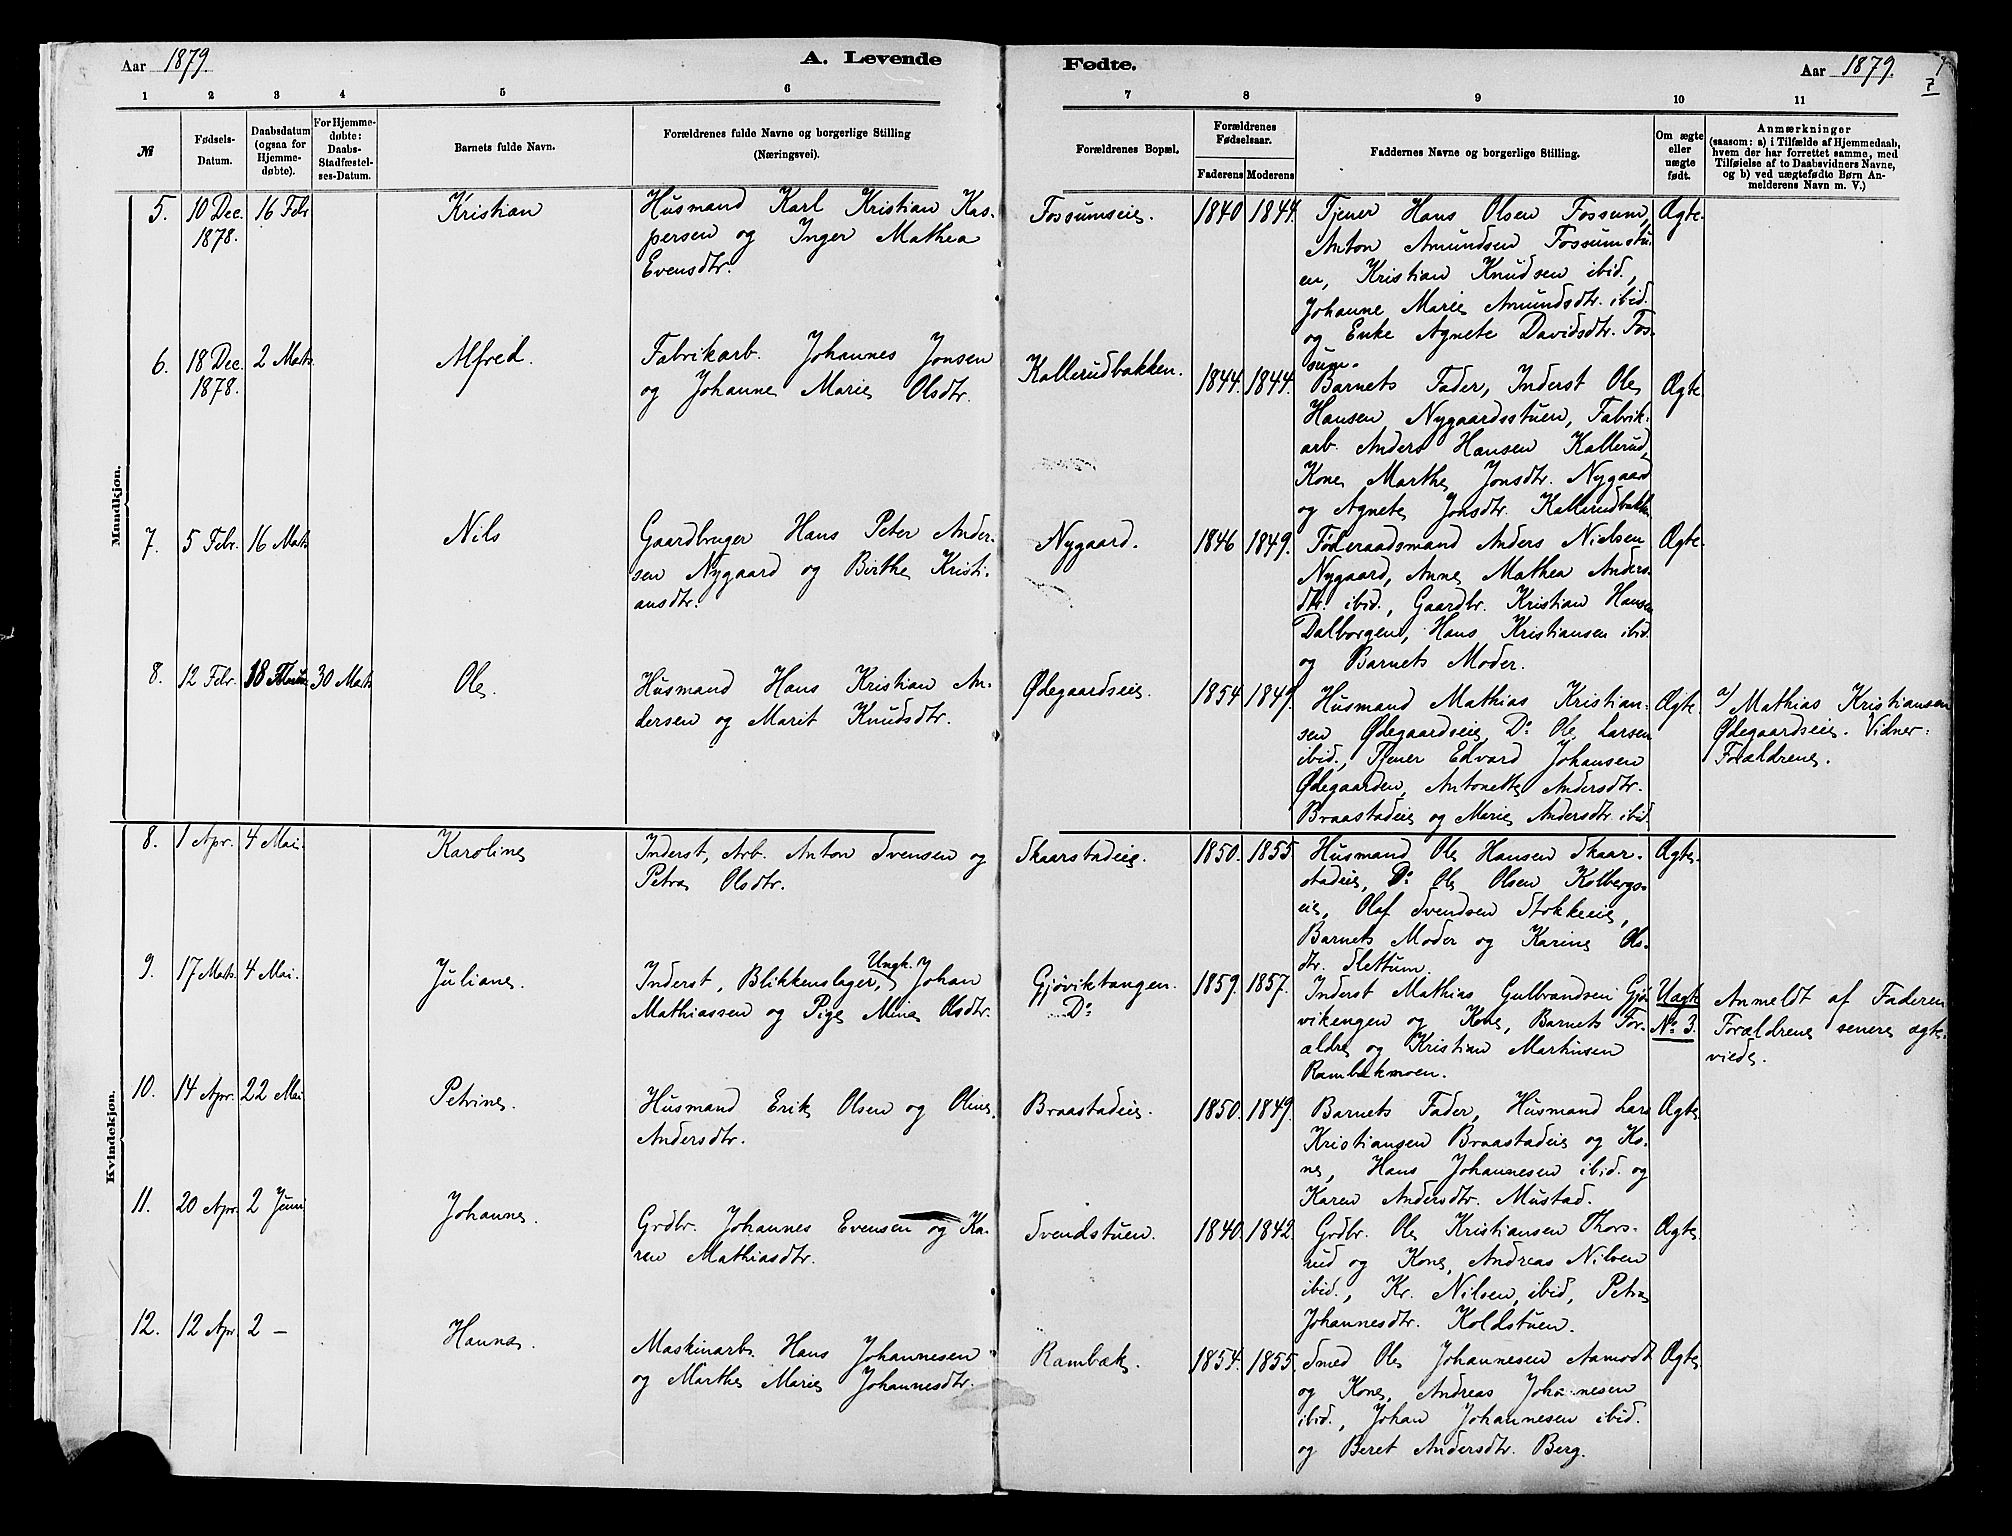 Aar 1879.
A. Levende
Fødte.
Aar 1879.
7
1 2 3 4 5 6
7 8 9 10 11
№
Fødsels-
Datum.
Daabsdatum
(ogsaa for
Hjemme-
døbte).
For Hjemme-
døbte:
Daabs-
Stadfæstel-
ses-Datum.
Barnets fulde Navn.
Forældrenes fulde Navne og borgerlige Stilling
(Næringsvei).
Forældrenes Bopæl.
Forældrenes
Fødselsaar.
Faderens Moderens
Faddernes Navne og borgerlige Stilling.
Om ægte
eller
uægte
født.
Anmærkninger
(saasom: a) i Tilfælde af Hjemmedaab,
hvem der har forrettet samme, med
Tilføielse af to Daabsvidners Navne,
og b) ved uægtefødte Børn An-
melderens Navn m. V.)
Mandkjøn.
5.
10 Dec.
1878.
16 Febr
Kristian
Husmand Karl Kristian Kas-
persen og Inger Mathea
Evensdtr.
Fossumseie.
1840 1844.
Tjener Hans Olsen Fossum,
Anton Amundsen Fossumstu-
en, Kristian Knudsen ibid.,
Johanne Marie Amundsdtr. ibid.
og Enke Agnete Davidsdtr. Fos-
sum.
Ægte.
6.
18 Dec.
1878.
2 Mats
Alfred.
Fabrikarb. Johannes Jonsen
og Johanne Marie Olsdtr.
Kallerudbakken.
1844. 1844.
Barnets Fader, Inderst Ole
Hansen Nygaardsstuen, Fabrik-
arb. Anders Hansen Kallerud,
Kone Marthe Jonsdtr. Nygaard
og Agnete Jonsdtr. Kallerudbakk
Ægte
7.
5 Febr.
16 Mats
Nils
Gaardbruger Hans Peter Ander-
sen Nygaard og Birthe Kristi-
ansdtr.
Nygaard.
1846 1849.
Føderaadsmand Anders Nielsen
Nygaard, Anne Mathea Anders-
dtr. ibid., Gaardbr. Kristian Hansen
Dalborgen, Hans Kristiansen ibid.
og Barnets Moder.
Ægte.
8.
12 Febr.
18
30 Mats
Ole.
Husmand Hans Kristian An-
dersen og Marit Knudsdtr.
Ødegaardseie.
1854 1849.
Husmand Mathias Kristian-
sen Ødegaardseie, Do Ole Larsen
ibid., Tjener Edvard Johansen
Ødegaarden, Antonette Andersdtr.
Braastadeie og Marie Andersdtr. ibid.
Ægte.
a) Mathias Kristiansen
Ødegaardseie. Vidner:
Forældrene.
Kvindekjøn.
8.
1 Apr.
4 Mai.
Karoline
Inderst, Arb. Anton Svensen og
Petra Olsdtr.
Skaarstadeie.
1850. 1855
Husmand Ole Hansen Skaar-
stadeie, Do Ole Olsen Kolbergs-
eie, Olaf Svendsen Stokkeeie,
Barnets Moder og Karine Ols-
dtr. Slettum.
Ægte.
9.
17 Mats.
4 Mai.
Juliane.
Inderst, Blikkenslager, Ungk. Johan
Mathiassen og Pige Mina Olsdtr.
Gjøviktangen.
Do
1859. 1857.
Inderst Mathias Gulbrandsen Gjø-
vikengen og Kone, Barnets For-
ældre og Kristian Martinsen
Rambækmoen.
Uægte
No 3.
Anmeldt af Faderen
Forældrene senere ægte-
viede.
10.
14 Apr.
22 Mai
Petrine.
Husmand Erik Olsen og Oline
Andersdtr.
Braastadeie.
1850. 1849.
Barnets Fader, Husmand Lars
Kristiansen Braastadeie og Ko-
ne, Hans Johannesen ibid. og
Karen Andersdtr. Mustad.
Ægte.
11.
20 Apr.
2 Juni
Johanne.
Grdbr. Johannes Evensen og Ka-
ren Mathiasdtr.
Svendstuen.
1840. 1842.
Grdbr. Ole Kristiansen Thors-
rud og Kone, Andreas Nilsen
ibid., Kr. Nilsen, ibid, Petra
Johannesdtr. Koldstuen.
Ægte.
12.
12 Apr
2 –
Hanna.
Maskinarb. Hans Johannesen
og Marthe Marie Johannesdtr.
Rambæk.
1854. 1855.
Smed Ole Johannesen Aamodt
og Kone, Andreas Johannesen
ibid., Johan Johannesen ibid.
og Beret Andersdtr. Berg.
Ægte.